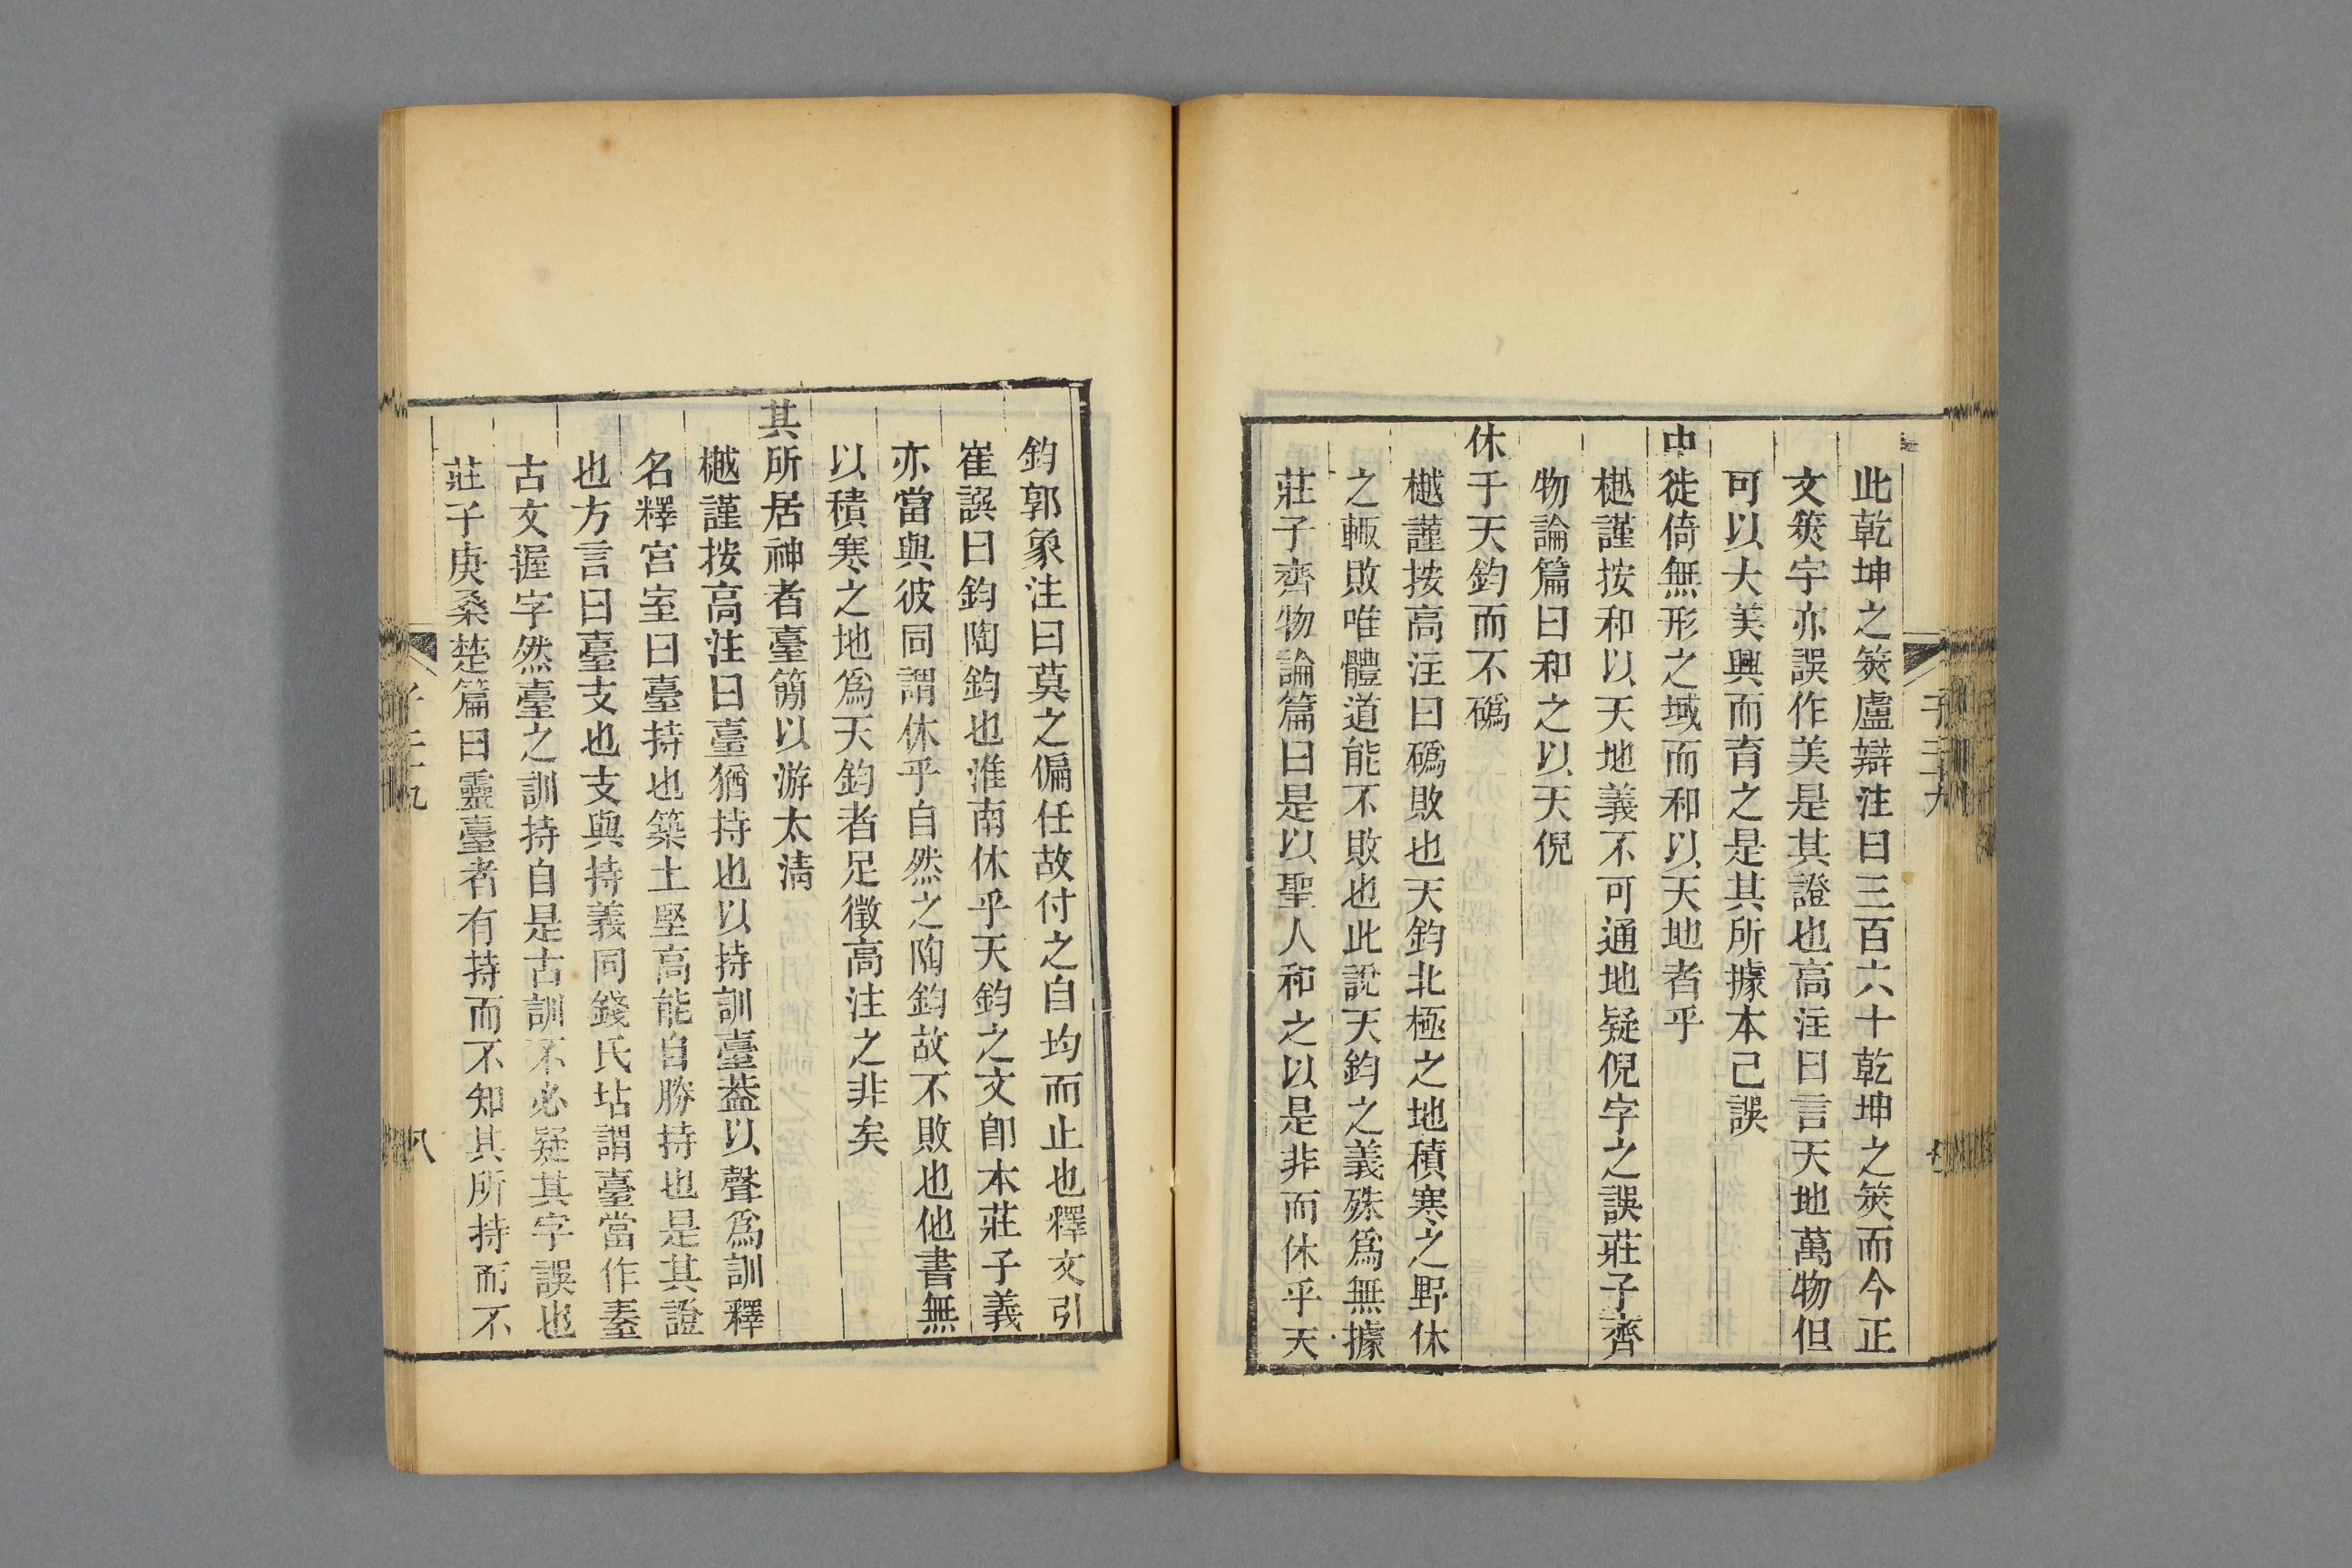 此乾坤之筴盧辯注曰三百六十乾坤之筴而今正
文筴字亦誤作美是其證也高注曰言天地萬物但
可以大美興而育之是其所據本已誤
中徙倚無形之域而和以天地者乎
樾謹按和以天地義不可通地疑倪字之誤莊子齊
物論篇曰和之以天倪
休于天鈞而不䃣
樾謹按高注曰䃣敗也天鈞北極之地積寒之野休
之輙敗唯體道能不敗也此說天鈞之義殊爲無據
莊子齊物論篇曰是以聖人和之以是非而休乎天
鈞郭象注曰莫之偏任故付之自均而止也釋文引
崔譔曰鈞陶鈞也淮南休乎天鈞之文卽本莊子義
亦當與彼同謂休乎自然之陶鈞故不敗也他書無
以積寒之地爲天鈞者足徵高注之非矣
其所居神者臺簡以游太淸
樾謹按高注曰臺猶持也以持訓臺葢以聲爲訓釋
名釋宮室曰臺持也築土堅高能自勝持也是其證
也方言曰臺支也支與持義同錢氏坫謂臺當作㙜
古文握字然臺之訓持自是古訓不必疑其字誤也
莊子庚桑楚篇曰靈臺者有持而不知其所持而不
子二十九
八